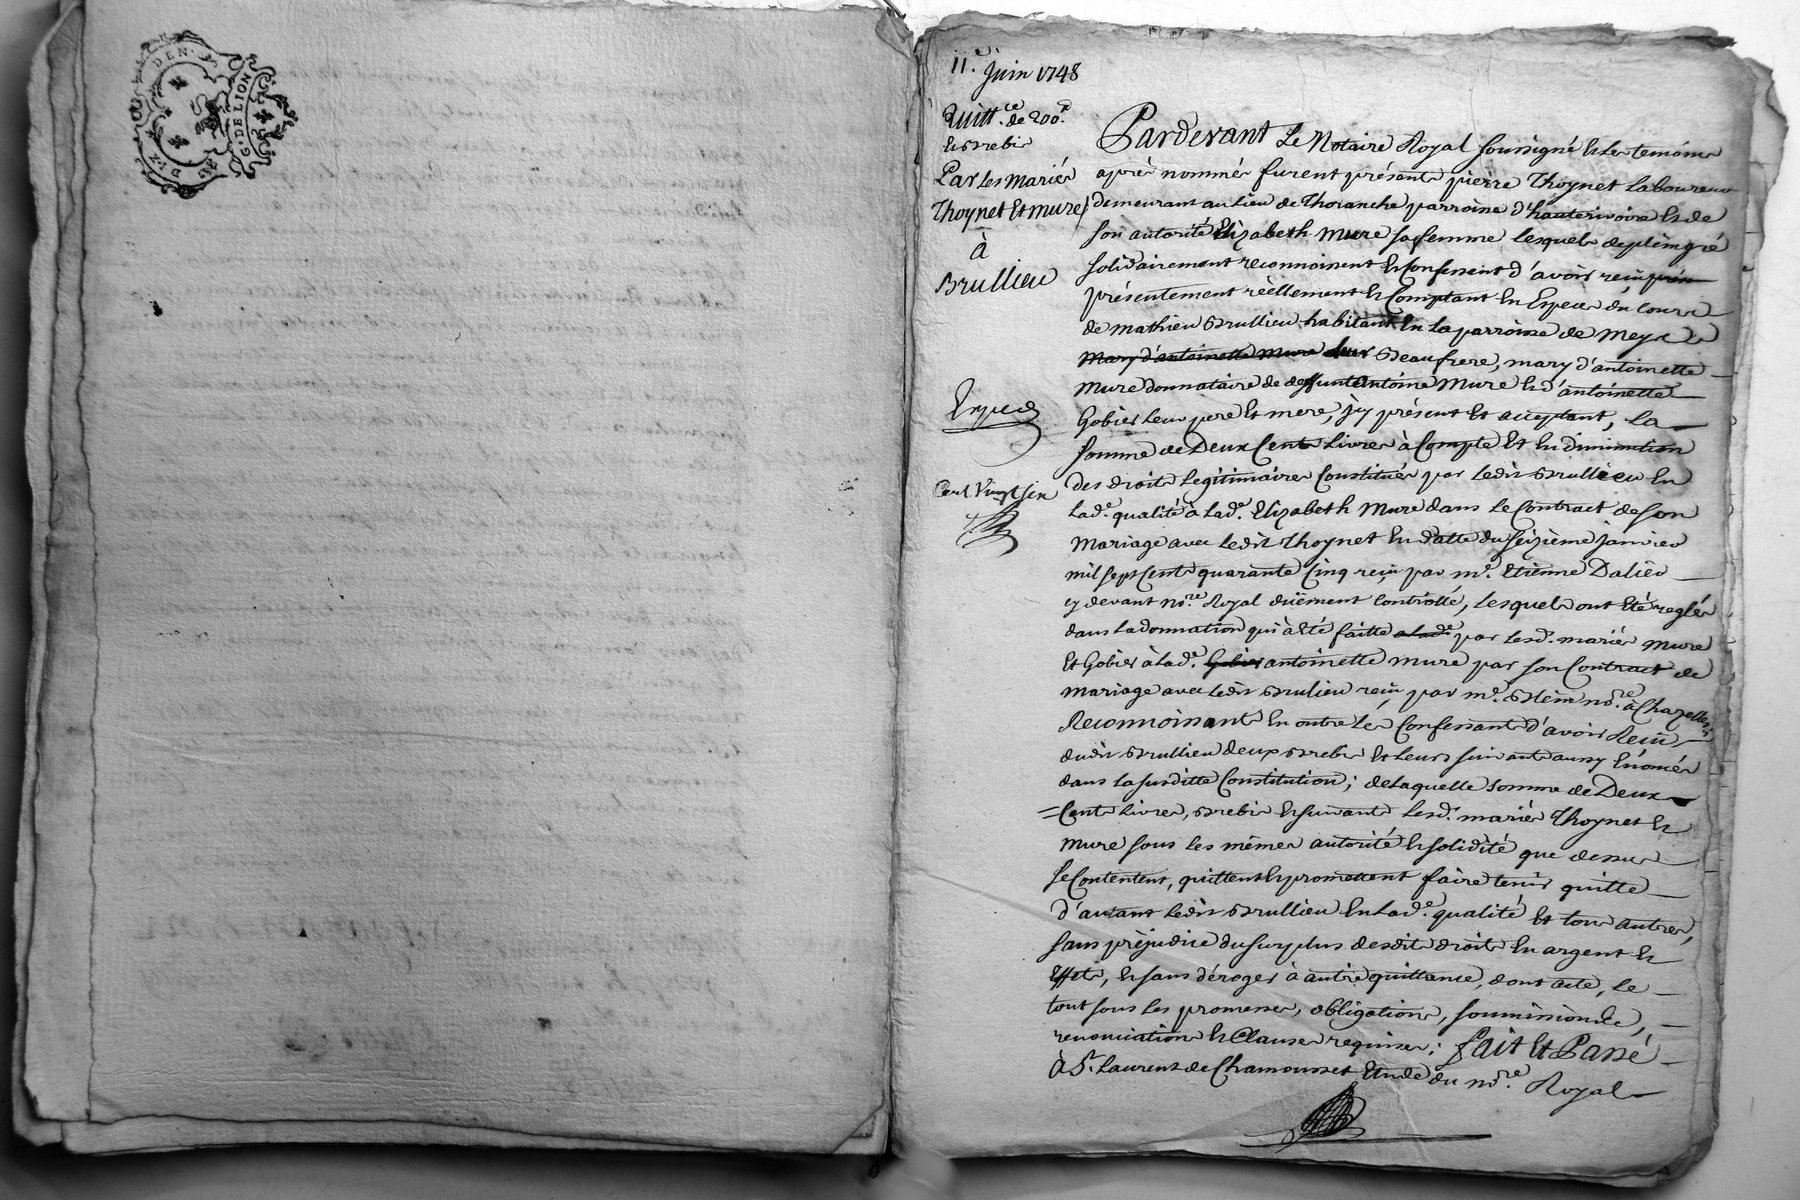 DEN.
G. DE LION
11. Juin 1748
Quitt.ce de 200.#
et Brebis
Par les mariés
Thoynet et mure
à
Brullieu
Expeé
Cent Vingt six
Pardevant Le Notaire Royal soussigné et les temoins
après nommés furent présents pierre Thoynet laboureur
demeurant au lieu de Thoranche parroisse d'hauterivoire et de
son autorité Elizabeth Mure sa femme lesquels de plein gré
solidairement reconnoissent et confessent d'avoir reçu
présentement réellement et Comptant en Espece du cours
de mathieu Brullieu habitant en la parroisse de Meys
mary d'antoinette mure leur Beaufrere, mary d'antoinette
Mure donnataire de deffunt antoine Mure et d'antoinette
Gobier leur pere et mere, jcy présent et acceptant, la
somme de Deux Cents Livres à Compte et en diminution
des droits Légitimaires Constitués par ledit Brullieu en
lad.e qualité à lad.e Elizabeth Mure dans le Contract de son
Mariage avec ledit Thoynet en datte du seizième janvier
mil sept Cent quarante Cinq reçu par m.e Etienne Dalier
cy devant no.re Royal düement Controllé, lesquels ont été reglés
dans la donnation qui à été faitte a lad.e par lesd. mariés Mure
et Gobier à lad.e Gobier antoinette mure par son Contract de
mariage avec ledit Brulieu reçu par m.e no.re à Chazelles
Reconnoissants en outre les Confessants d'avoir Reçu
dudit Brullieu deux Brebis et leurs suivants aussy énomés
dans la susditte Constitution; de laquelle somme de Deux
=Cents Livres, Brebis et suivants lesd. mariés Thoynet et
Mure sous les mêmes autorité et solidité que dessus
se Contentent, quittent et promettent faire tenir quitte
d'autant ledit Brullieu en lad.e qualité et tous autres,
sans préjudice du surplus desdits droits en argent et
effets, et sans déroger à autre quittance, dont acte, le
tout sous les promesses, obligations, soumissions,
renonciations et Clauses requises; fait et Passé
à S.t Laurent de Chamousset Etude du no.re Royal